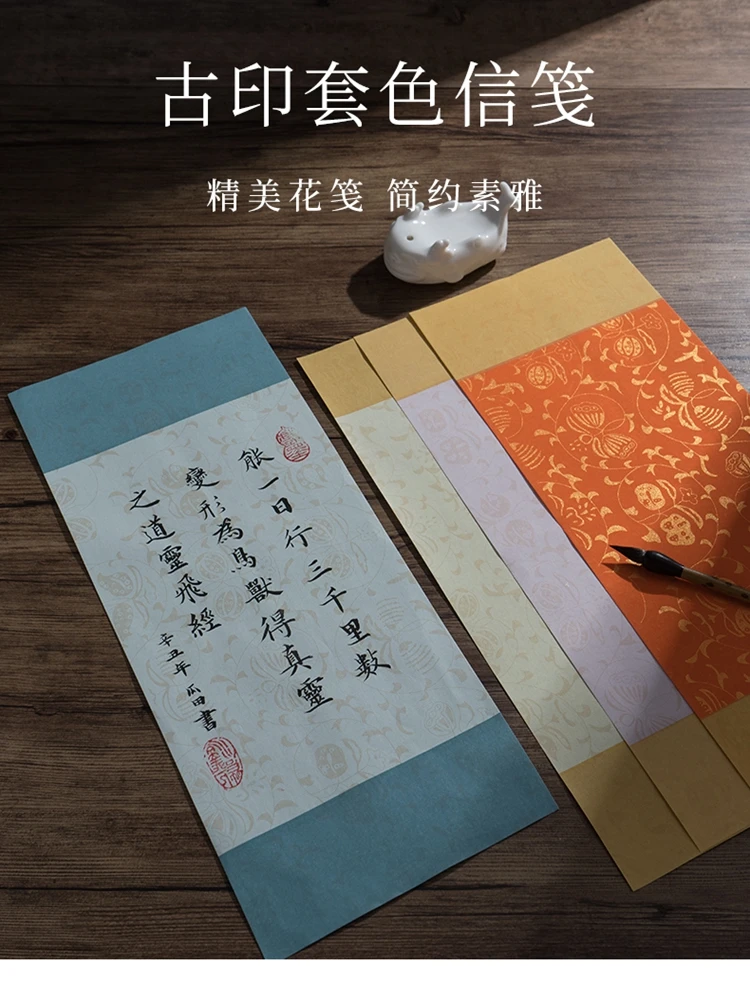 古印套色信笺
精美花笺 简约素雅
能一日行三千里數
變形為鳥獸得真靈
之道靈飛經
辛丑年 瓜田書